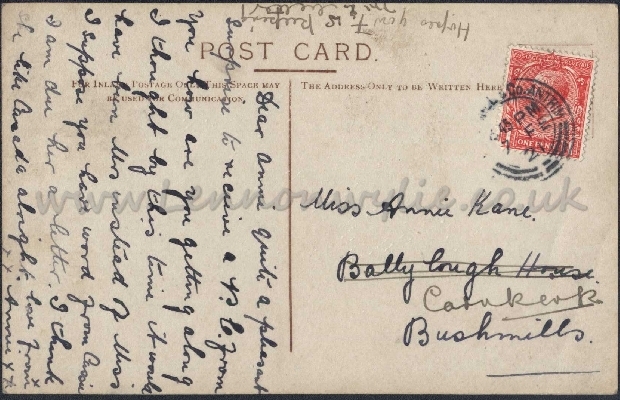 Hopes your
T is keeping
POST CARD.
FOR INLAND POSTAGE ONLY THIS SPACE MAY
BE USED FOR COMMUNICATION.
THE ADDRESS ONLY TO BE WRITTEN HERE
Dear Annie Quite a pleasant
surprise to receive a P. C. from
You how are you getting along
I thought by this time it would
have been Mrs instead of Miss
I suppose you have word from Cassie
I am due her a letter. I think
she like Canada alright. love from
x x Annie x x
Miss Annie Kane.
Ballylough House.
Carnkerk
Bushmills.
CO. ANTRIM
ONE PENNY
www.lennonwylie.co.uk